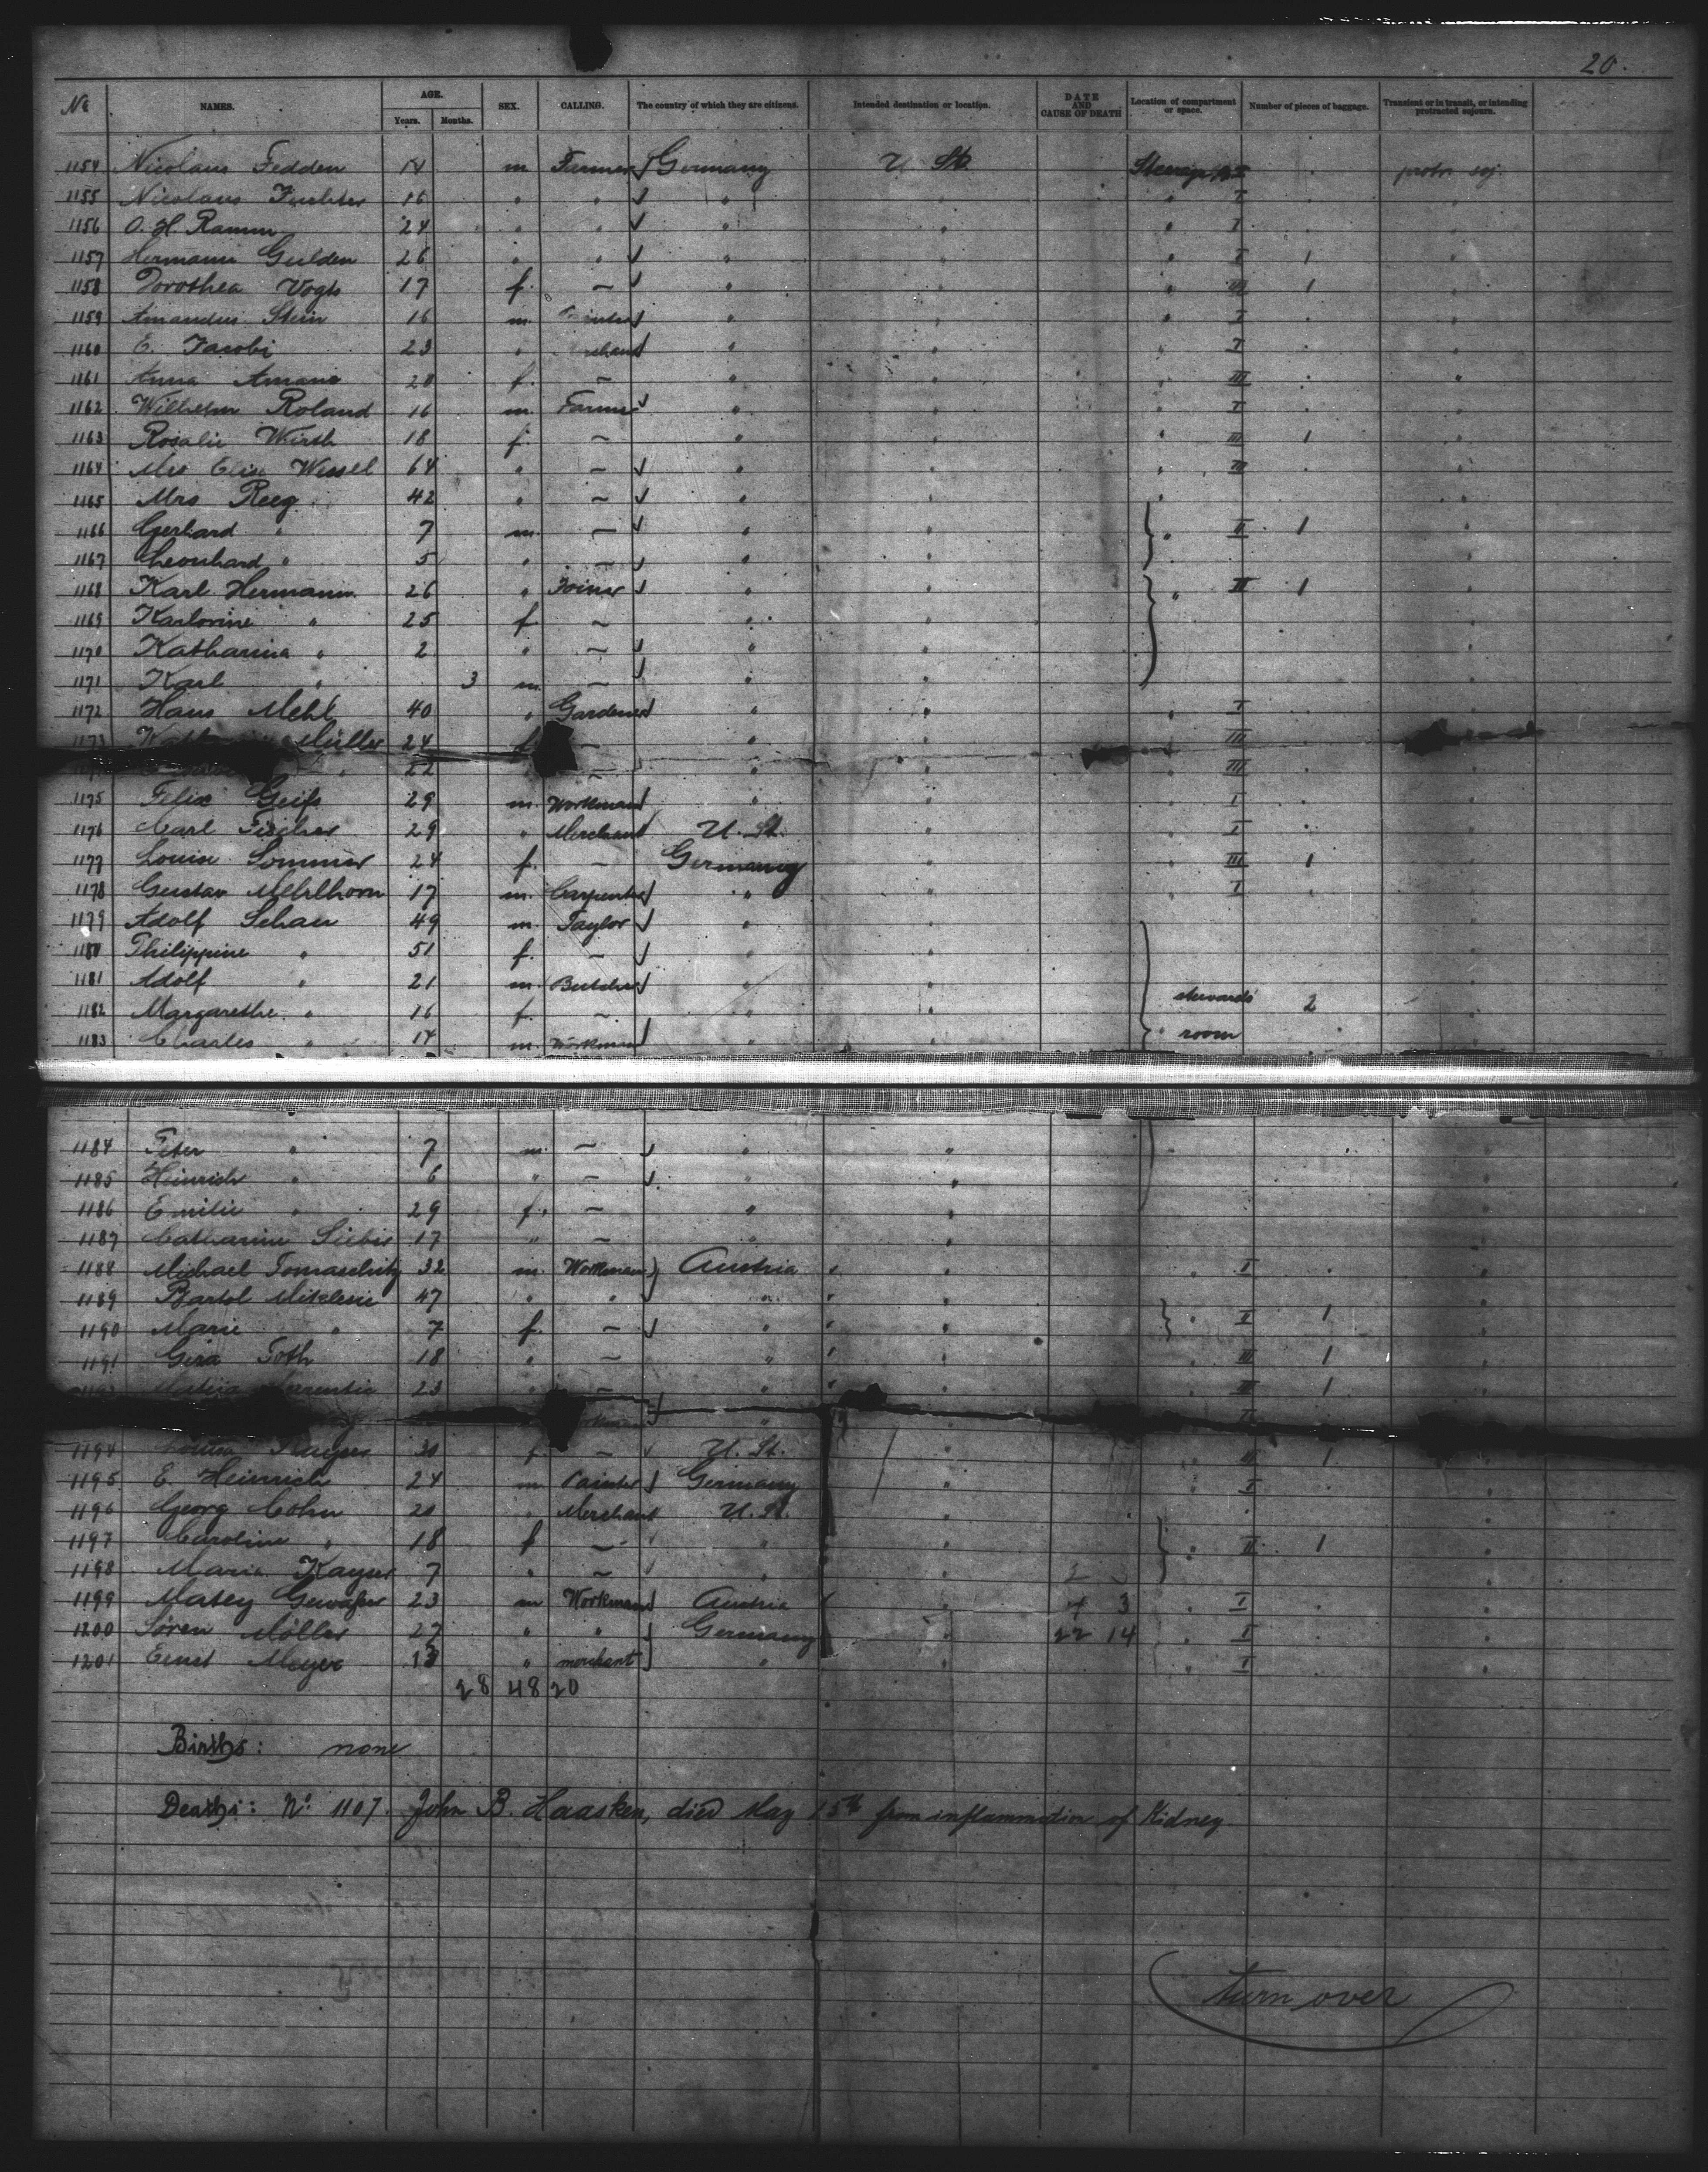 20.
No NAMES. AGE. SEX. CALLING. The country of which they are citizens. Intended destination or location. DATE AND CAUSE OF DEATH Location of compartment or space. Number of pieces of baggage. Transient or in transit, or intending protracted sojourn.
Years. Months.
1154 Nicolaus Fedden 14 m Farmer Germany U. St. Steerage protr. soj.
1155 Nicolaus 16 " " " " " I "
1156 O. H. Ramm 24 " " " " " I "
1157 Hermann Gulden 26 " " " " " I 1 "
1158 Dorothea Vogts 17 f. — " " " III 1 "
1159 Amandus Stein 16 m. " " " I "
1160 E. Jacobi 23 " " " " I "
1161 Anna 20 f. — " " " III "
1162 Wilhelm Roland 16 m. Farmer " " " I "
1163 Rosalie Wirth 18 f. — " " " III 1 "
1164 Mrs Elise Wessel 64 " — " " " III "
1165 Mrs Reeg 42 " — " " "
1166 Gerhard " 7 m. — " " " II 1 "
1167 Leonhard " 5 " — " " "
1168 Karl Hermann 26 " Joiner " " " II 1 "
1169 Karlorine " 25 f — " " "
1170 Katharina " 2 " — " " "
1171 Karl " 3 m. — " " "
1172 Hans Mehl 40 " Gardener " " " I "
1173 Müller 24 f — " III
22 — " " III
1175 Felix Geiss 29 m. Workman " " " I "
1176 Carl Fischer 29 " Merchant U. St. " " I "
1177 Louise Sommer 24 f. — Germany " " III 1 "
1178 Gustav Mehlhorn 17 m. Carpenter " " " I "
1179 Adolf Schau 49 m. Taylor " " "
1180 Philippine " 51 f. — " " "
1181 Adolf " 21 m. Butcher " " "
1182 Margarethe " 16 f. — " " stewards' 2 "
1183 Charles " 14 m. Workman " " " room "
1184 Peter " 7 m. — " " "
1185 Heinrich " 6 " — " " "
1186 Emilie " 29 f. — " " "
1187 Catharine 17 " — " " "
1188 Michael Tomaschitz 32 m. Workman Austria " " I "
1189 Bartol 47 " " " " "
1190 Marie " 7 f. — " " " I 1 "
1191 Toth 18 " — " " " III 1 "
23 " — " " " III 1 "
1194 30 f — U. St. " " III 1 "
1195 E. Heinrich 24 m Painter Germany " " I "
1196 Georg Cohn 20 " Merchant U. St. "
1197 Caroline " 18 f — " " " II 1 "
1198 Maria Kayser 7 " — " "
1199 Matey 23 m Workman Austria " 4 3 " I "
1200 Sören Möller 27 " " Germany " 22 14 " I "
1201 Ernst Meyer 13 " merchant " " " I "
28 48 20
Births: none
Deaths: No 1107. John B. Haasken, died May 15th from inflammation of Kidney.
turn over